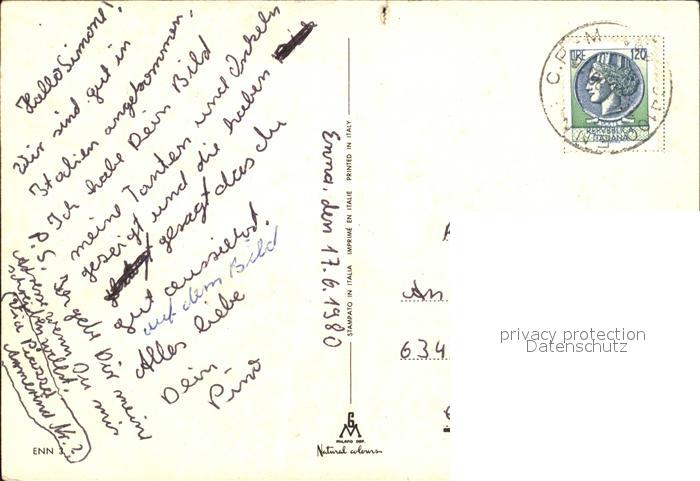 Hallo Simone!
Wir sind gut in
Italien angekommen.
Ich habe Dein Bild
meine Tanten und Onkeln
gezeigt und die haben
gesagt das du
gut aussiehst.
auf dem Bild
Alles liebe
Dein
Pino
P.S. Ich gebe Dir mein
Adresse wenn Du mir
schreiben willst.
Via Piazza
Nr. 2
Enna, den 17.6.1980
STAMPATO IN ITALIA IMPRIMÉ EN ITALIE PRINTED IN ITALY
GM
MILANO DEP.
Natural colours
ENN 3
LIRE 120
REPVBBLICA
ITALIANA
C.P.
An
634
privacy protection
Datenschutz